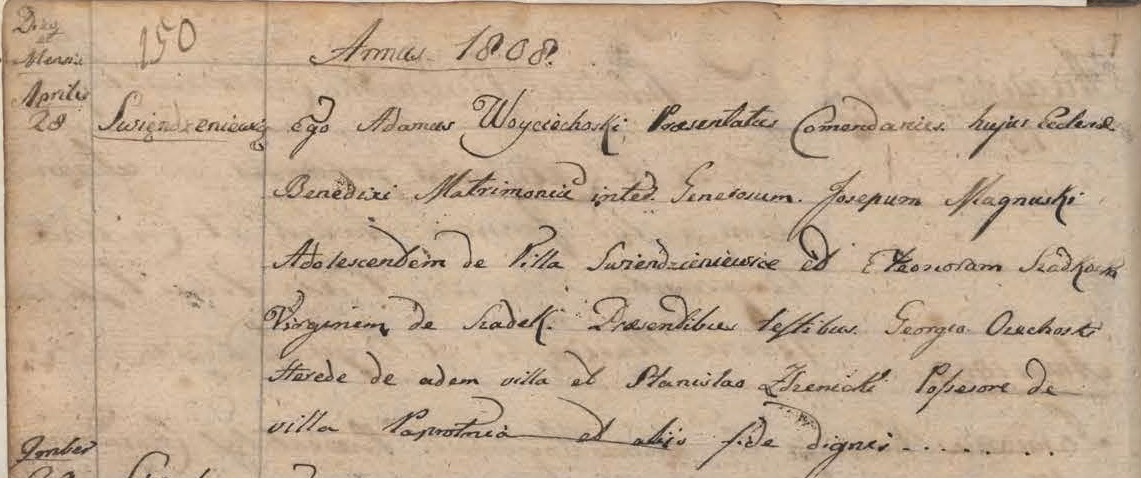 Dies
et
Mensis
Aprilis
28
150
Annus 1808.
Swiendzeniewice
Ego Adamus Woyciechoski Præsentatus Comendarius hujus Ecclesiæ
Benedixi Matrimonia inter Generosum Josepum Magnuski
Adolescentem de Villa Swiendzieniewice et Eleonoram
Virginem de Szadek. Præsentibus testibus Georgio Orzechoski
Herede de adem villa et Stanislao Possesore de
villa Paprotnia et aliis fide dignis . . . . . .